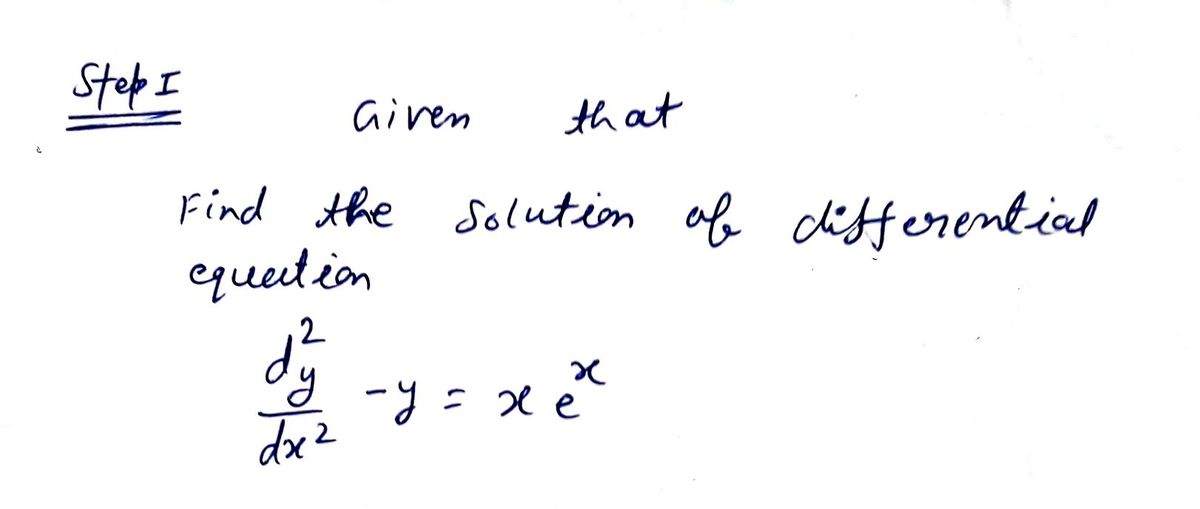 Step I
Given that
Find the solution of differential
equation
d²y/dx² - y = x eˣ